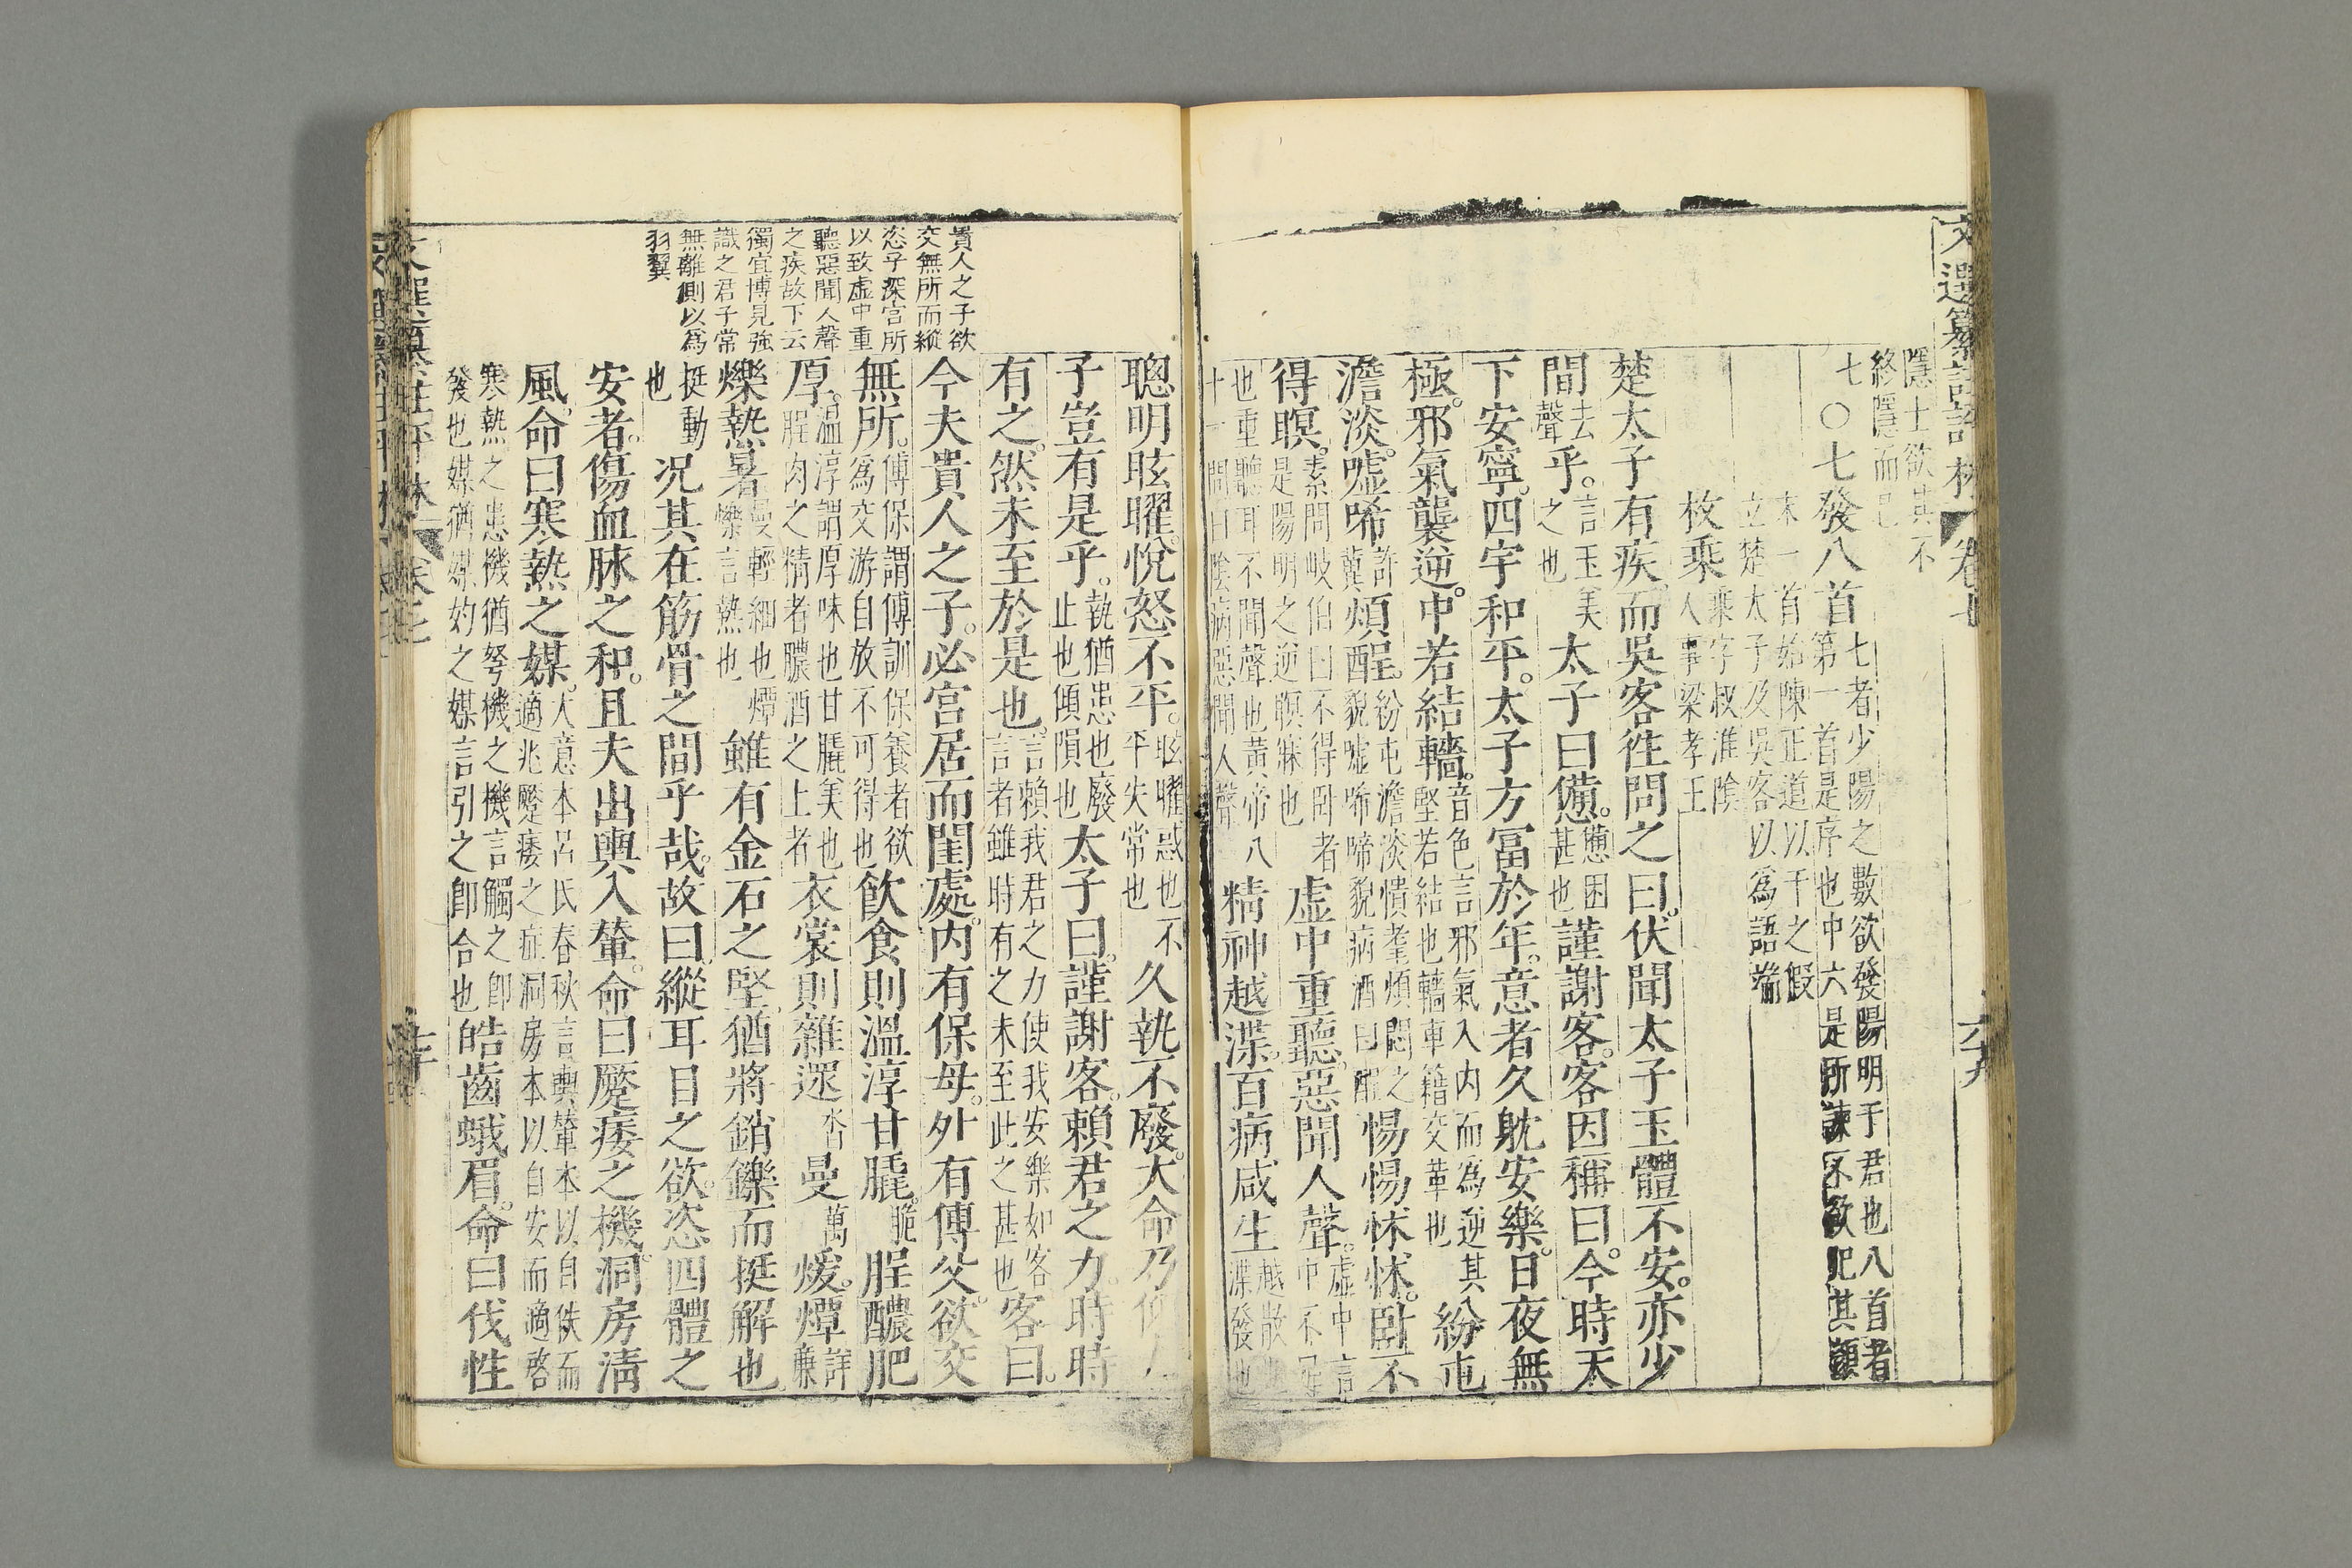 文選纂註評林 卷七 六十九
隱士欲其不
終隱而已
七〇七發八首
七者少陽之數欲發陽明于君也八首者
第一首是序也中六是所諫不欲犯其顏
末一首始陳正道以干之假
立楚太子及吳客以為語端
枚乘
乘字叔淮陰
人事梁孝王
楚太子有疾而吳客徃問之曰。伏聞太子玉體不安。亦少
間去聲乎。言玉美之也太子曰憊。憊困甚也謹謝客。客因稱曰。今時天
下安寧。四宇和平。太子方富於年。意者久躭安樂。日夜無
極。邪氣襲逆。中若結轖。音色言邪氣入內而為逆其堅若結也轖車籍交革也紛屯
澹淡。噓唏許冀煩酲。紛屯澹淡憒耄煩悶之貌噓唏啼貌病酒曰酲惕惕怵怵。臥不
得瞑。素問岐伯曰不得臥者是陽明之逆瞑寐也虛中重聽。惡聞人聲。虛中言中不
也重聽耳不聞聲也黃帝八十一問曰陰病惡聞人聲精神越渫。百病咸生越散也渫發也
聰明眩曜。悅怒不平。眩曜惑也不平失常也久執不廢。大命乃傾
子豈有是乎。執猶患也廢止也傾隕也太子曰。謹謝客。賴君之力。時時
有之。然未至於是也。言賴我君之力使我安樂如客言者雖時有之未至此之甚也客曰。
今夫貴人之子。必宮居而閨處。內有保母。外有傅父。欲交
無所。傅保謂傅訓保養者欲為交游自放不可得也飲食則溫淳甘脆。脆腥醲肥
厚。溫淳謂厚味也甘脆美也腥肉之精者醲酒之上者衣裳則雜遝沓曼萬煖。燂詳廉
爍熱暑曼輕細也燂爍言熱也雖有金石之堅。猶將銷鑠而挺解也。
挺動也況其在筋骨之間乎哉。故曰縱耳目之欲。恣四體之
安者。傷血脉之和。且夫出輿入輦。命曰蹷痿之機。洞房清
風。命曰寒熱之媒。大意本呂氏春秋言輿輦本以自佚而適兆蹷痿之症洞房本以自安而適啓
寒熱之患機猶弩機之機言觸之即發也媒猶媒妁之媒言引之即合也皓齒蛾眉。命曰伐性
貴人之子欲
交無所而縱
恣于深宮所
以致虛中重
聽惡聞人聲
之疾故下云
獨宜博見強
識之君子常
無離側以為
羽翼